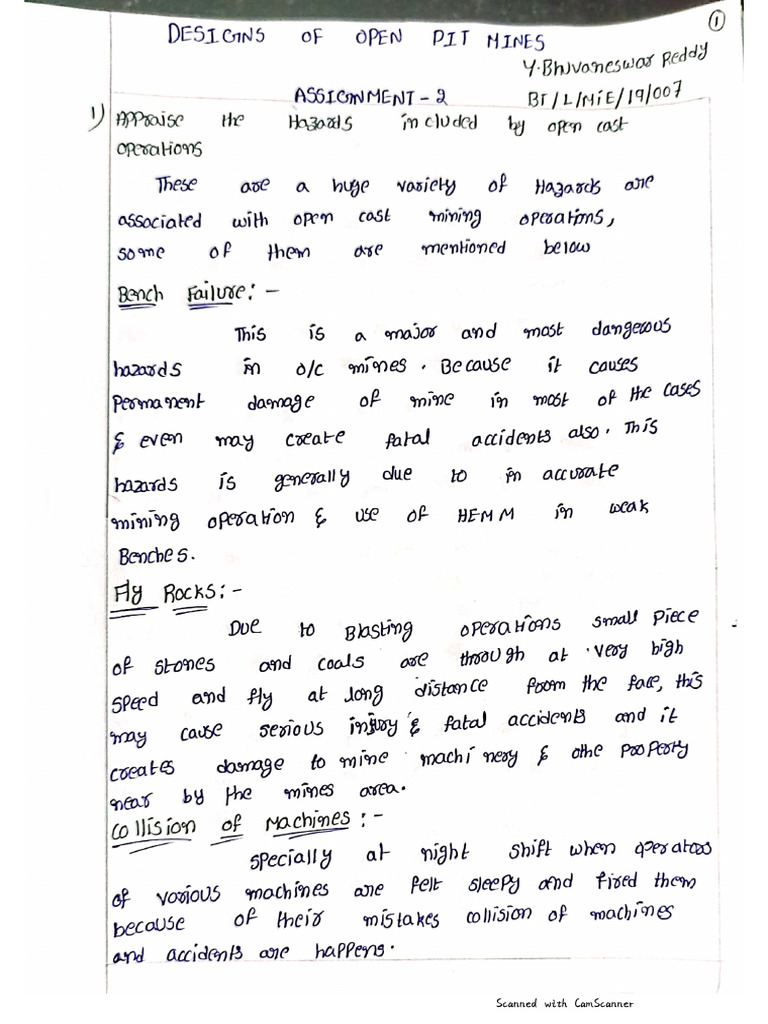 ①
DESIGNS OF OPEN PIT MINES
Y.Bhuvaneswar Reddy
ASSIGNMENT-2 BT/L/MiE/19/007
1) Appraise the Hazards included by open cast
operations
These are a huge variety of Hazards are
associated with open cast mining operations,
some of them are mentioned below
Bench Failure:-
This is a major and most dangerous
hazards in o/c mines. Because it causes
Permanent damage of mine in most of the cases
& even may create fatal accidents also. This
hazards is generally due to in accurate
mining operation & use of HEMM in weak
Benches.
Fly Rocks:-
Due to Blasting operations small piece
of stones and coals are through at very high
speed and fly at long distance from the face, this
may cause serious injury & fatal accidents and it
creates damage to mine machinery & othe property
near by the mines area.
Collision of Machines:-
Specially at night shift when operators
of various machines are felt sleepy and fired them
because of their mistakes collision of machines
and accidents are happens.
Scanned with CamScanner